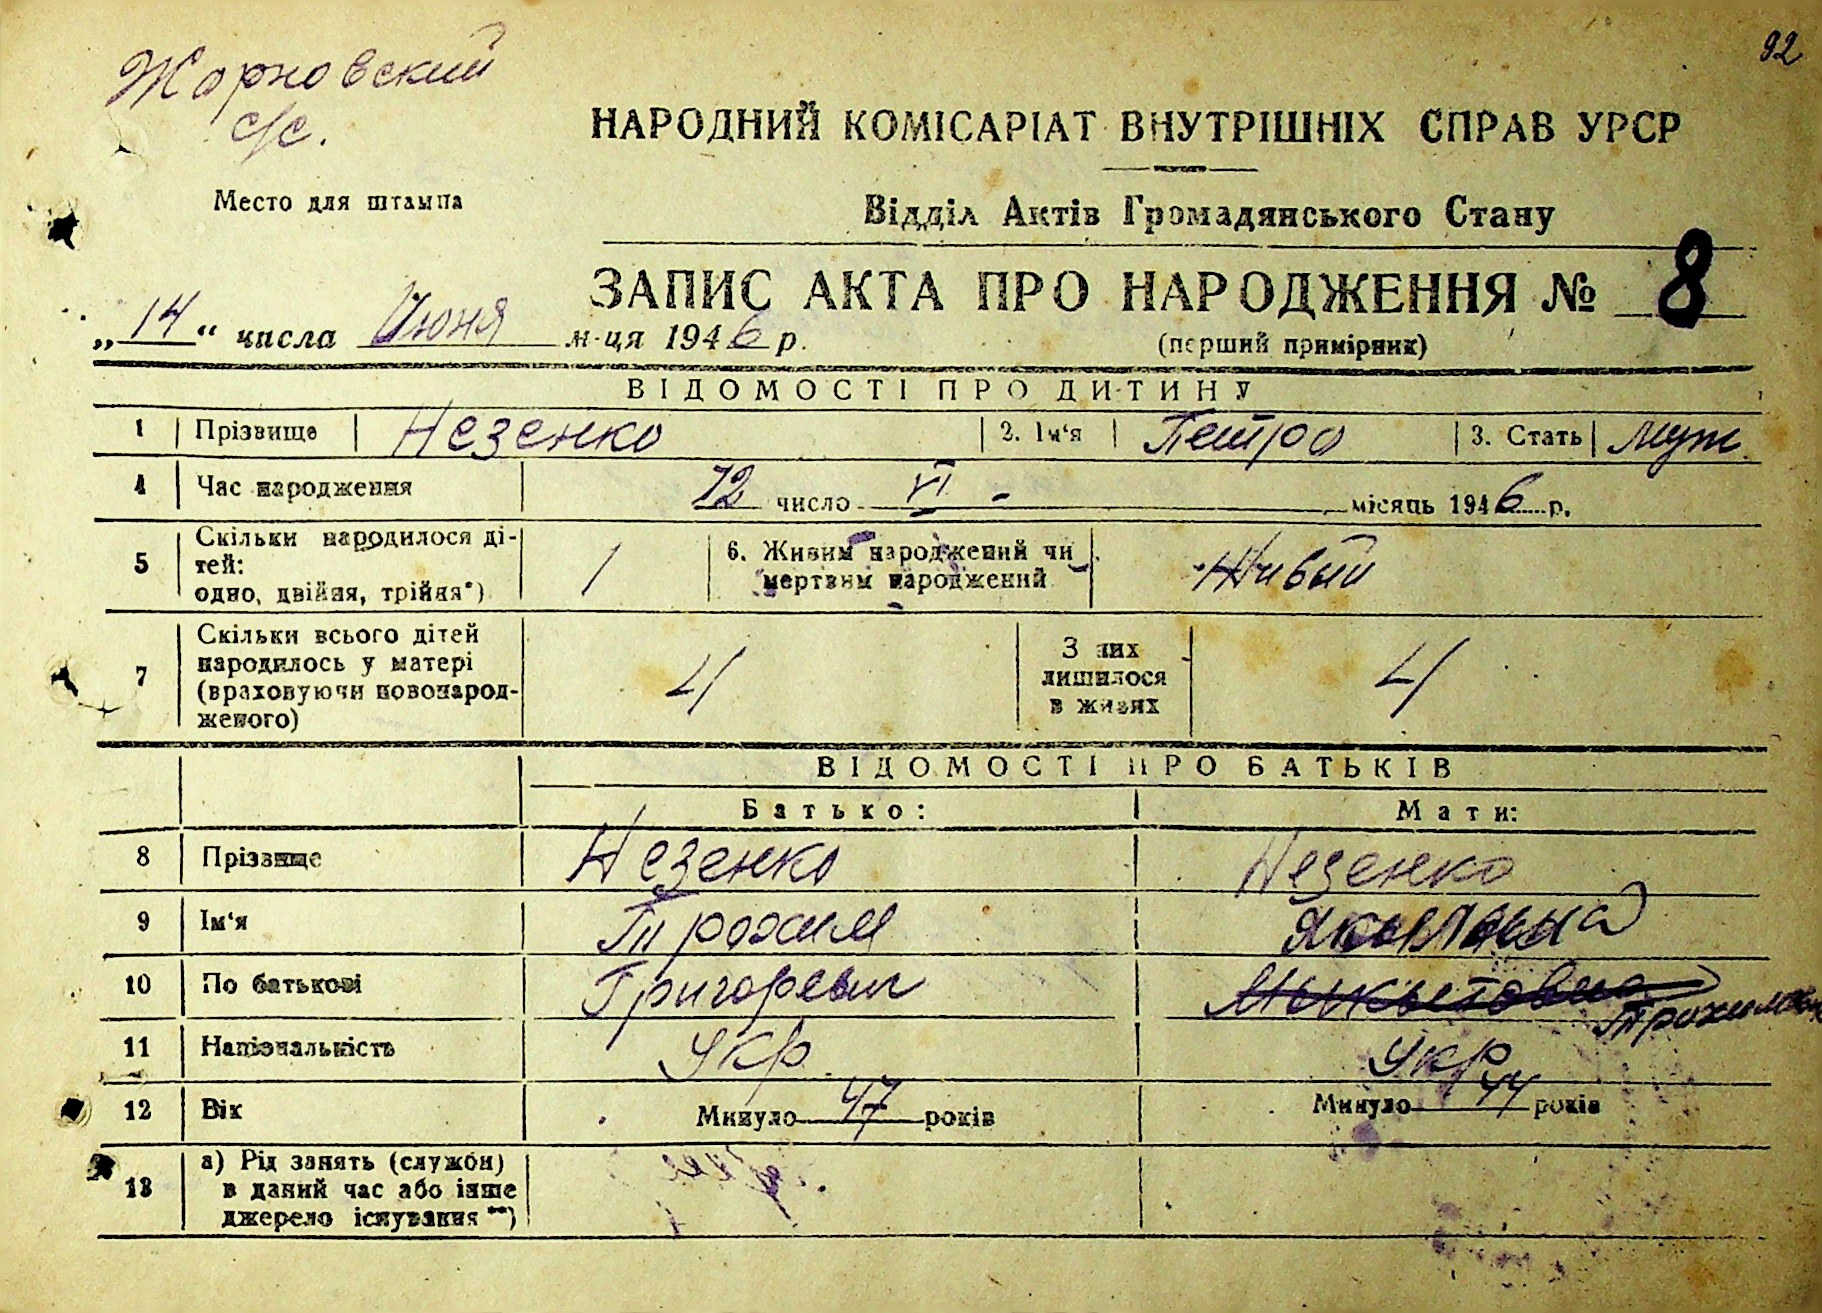 92
Жорновский
с/с.
НАРОДНИЙ КОМІСАРІАТ ВНУТРІШНІХ СПРАВ УРСР
Место для штампа
Відділ Актів Громадянського Стану
ЗАПИС АКТА ПРО НАРОДЖЕННЯ № 8
„14“ числа Июня м-ця 1946 р.
(перший примірник)
ВІДОМОСТІ ПРО ДИТИНУ
1 Прізвище Незенко 2. Ім‘я Петро 3. Стать муж.
4 Час народження 12 число VI - місяць 1946 р.
5 Скільки народилося ді-
тей:
одно, двійня, трійня*) 1 6. Живим народжений чи
мертвим народжений Живый
7 Скільки всього дітей
народилось у матері
(враховуючи новонарод-
женого) 4 З них
лишилося
в живих 4
ВІДОМОСТІ ПРО БАТЬКІВ
Батько: Мати:
8 Прізвище Незенко Незенко
9 Ім‘я Трохим
10 По батькові Григоревич Мыкытовна
11 Національність Укр Укр
12 Вік Минуло 47 років Минуло 44 років
13 а) Рід занять (служби)
в даний час або інше
джерело існування **)